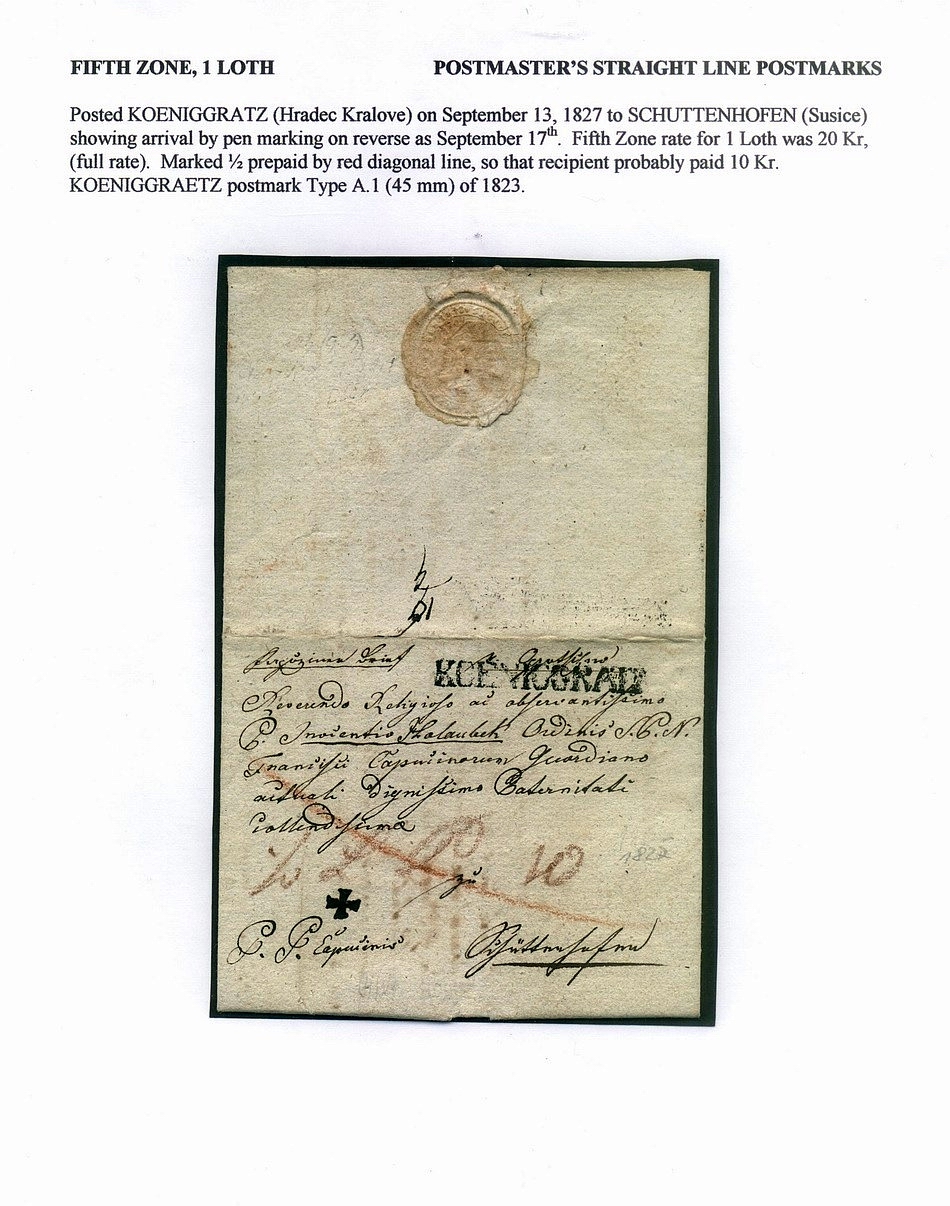 FIFTH ZONE, 1 LOTH POSTMASTER'S STRAIGHT LINE POSTMARKS
Posted KOENIGGRATZ (Hradec Kralove) on September 13, 1827 to SCHUTTENHOFEN (Susice)
showing arrival by pen marking on reverse as September 17th. Fifth Zone rate for 1 Loth was 20 Kr,
(full rate). Marked ½ prepaid by red diagonal line, so that recipient probably paid 10 Kr.
KOENIGGRAETZ postmark Type A.1 (45 mm) of 1823.
Brief
KOENIGGRATZ
Reverendo Religioso ac observantissimo
P. Inocentio Ordinis S. P. N.
Francisci Capucinorum Guardiano
actuali Dignissimo Paternitati
collendissimae
10
1827
zu
P. P. Capucinis Schüttenhofen